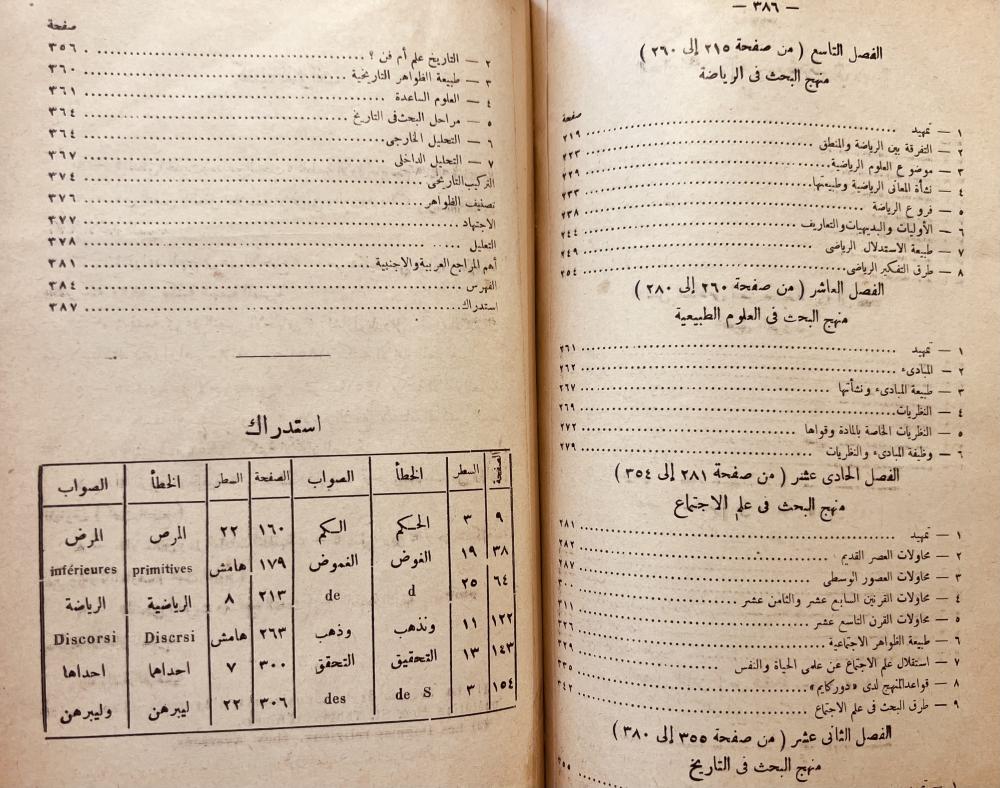 — ٣٨٦ —
الفصل التاسع ( من صفحة ٢١٥ إلى ٢٦٠ )
منهج البحث فى الرياضة
صفحة
١ — تمهيد ........ ٢١٩
٢ — التفرقة بين الرياضة والمنطق ........ ٢٢٣
٣ — موضوع العلوم الرياضية ........ ٢٢٩
٤ — نشأة المعانى الرياضية وطبيعتها ........ ٢٣٣
٥ — فروع الرياضة ........ ٢٣٨
٦ — الأوليات والبديهيات والتعاريف ........ ٢٤٤
٧ — طبيعة الاستدلال الرياضى ........ ٢٤٩
٨ — طرق التفكير الرياضى ........ ٢٥٤
الفصل العاشر ( من صفحة ٢٦٠ إلى ٢٨٠ )
منهج البحث فى العلوم الطبيعية
١ — تمهيد ........ ٢٦١
٢ — المبادىء ........ ٢٦٢
٣ — طبيعة المبادىء ونشأتها ........ ٢٦٧
٤ — النظريات ........ ٢٦٩
٥ — النظريات الخاصة بالمادة وقواها ........ ٢٧٢
٦ — وظيفة المبادىء والنظريات ........ ٢٧٩
الفصل الحادى عشر ( من صفحة ٢٨١ إلى ٣٥٤ )
منهج البحث فى علم الاجتماع
١ — تمهيد ........ ٢٨١
٢ — محاولات العصر القديم ........ ٢٨٢
٣ — محاولات العصور الوسطى ........ ٢٨٧
٤ — محاولات القرنين السابع عشر والثامن عشر ........ ٣٠٠
٥ — محاولات القرن التاسع عشر ........ ٣١١
٦ — طبيعة الظواهر الاجتماعية ........ ٣٢٦
٧ — استقلال علم الاجتماع عن علمى الحياة والنفس ........ ٣٢٩
٨ — قواعد المنهج لدى «دوركايم» ........ ٣٣٥
٩ — طرق البحث فى علم الاجتماع ........ ٣٤٢
الفصل الثانى عشر ( من صفحة ٣٥٥ إلى ٣٨٠ )
منهج البحث فى التاريخ
١ — تمهيد ........ ٣٥٥
صفحة
٢ — التاريخ علم أم فن ؟ ........ ٣٥٦
٣ — طبيعة الظواهر التاريخية ........ ٣٦٠
٤ — العلوم المساعدة ........ ٣٦١
٥ — مراحل البحث فى التاريخ ........ ٣٦٤
٦ — التحليل الخارجى ........ ٣٦٤
٧ — التحليل الداخلى ........ ٣٦٧
التركيب التاريخى ........ ٣٧٤
تصنيف الظواهر ........ ٣٧٦
الاجتهاد ........ ٣٧٧
التعليل ........ ٣٧٨
أهم المراجع العربية والاجنبية ........ ٣٨١
الفهرس ........ ٣٨٤
استدراك ........ ٣٨٧
استدراك
الصفحة السطر الخطأ الصواب الصفحة السطر الخطأ الصواب
٩ ٣ الحكم الكم ١٦٠ ٢٢ المرص المرض
٣٨ ١٩ الفوض الغموض ١٧٩ هامش primitives inférieures
٦٤ ٢٥ d de ٢١٣ ٨ الرياضية الرياضة
١٢٢ ١١ ونذهب وذهب ٢٦٣ هامش Discrsi Discorsi
١٤٣ ١٣ التحقيق التحقق ٣٠٠ ٧ احداهما احداها
١٥٤ ٣ de S des ٣٠٦ ٢٢ ليبرهن وليبرهن